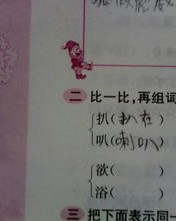 二 比一比,再组词
扒(趴在)
叭(喇叭)
欲( )
浴( )
三 把下面表示同一